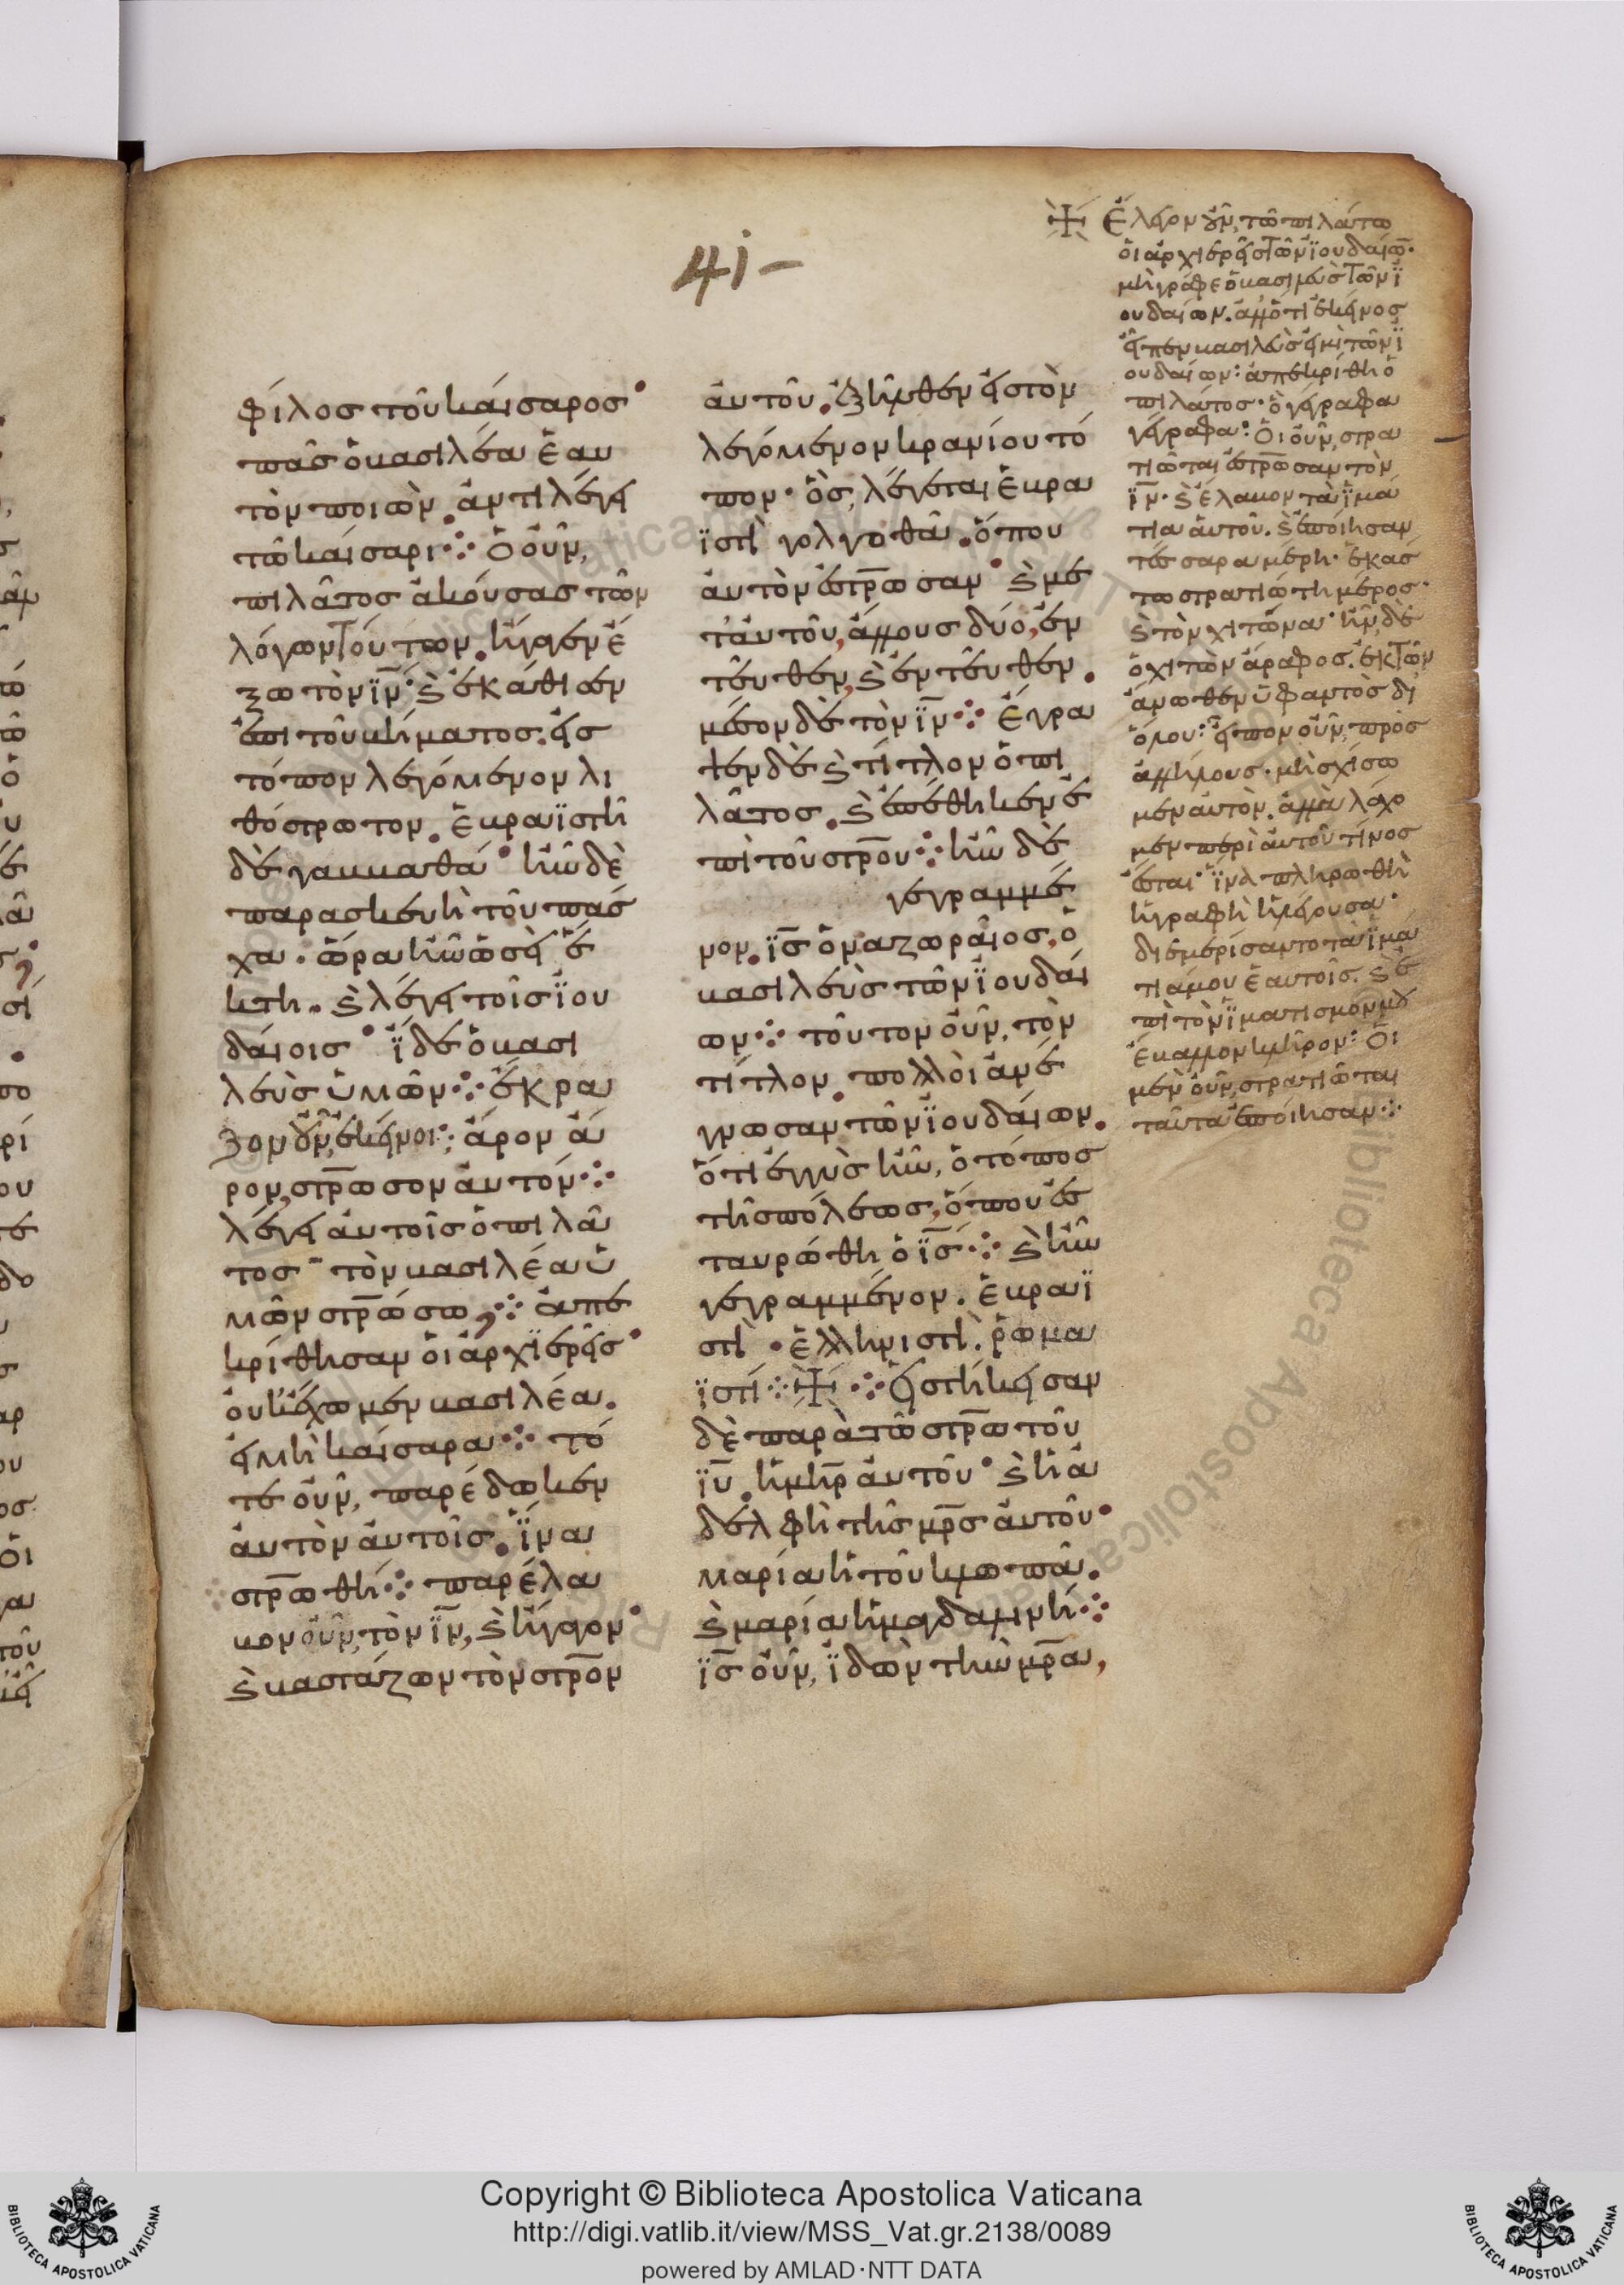 41-
φίλος τοῦ καίσαρος·
πᾶς ὁ βασιλέα ἑαυ
τὸν ποιῶν. ἀντιλέγει
τῶ καίσαρι⁘ Ὁ οὖν,
πιλᾶτος ἀκούσας τῶν
λόγων τούτων. ἤγαγεν ἔ
ξω τὸν ἰν̅· ϗ ἐκάθισεν
ἐπὶ τοῦ βήματος. εἰς
τόπον λεγόμενον λι
θόστρωτον. ἑβραϊστὴ
δὲ γαββαθά· ἦν δὲ
παρασκευὴ τοῦ πάσ
χα. ὥρα ἦν ὡσεὶ ἕ
κτη. ϗ λέγει τοῖς ἰου
δαίοις· ἴδε ὁ βασι
λεὺς ὑμῶν⁘ ἔκρα
ζον οὖν, ἐκεῖνοι⁘ ἆρον ἆ
ρον, στρ̅ωσον αὐτόν⁘
λέγει αὐτοῖς ὁ πιλᾶ
τος· τὸν βασιλέα ὑ
μῶν στρ̅ώσω,⁘ ἀπε
κρίθησαν οἱ ἀρχϊερεῖς·
οὐκ ἔχωμεν βασιλέα.
εἰ μὴ καίσαρα⁘ τό
τε οὖν, παρέδωκεν
αὐτὸν αὐτοῖς. ἵνα
στρ̅ωθῆ⁘ παρέλα
βον οὖν, τὸν ἰν̅, ϗ ἤγαγον·
ϗ βαστάζων τὸν στρ̅ον
αὐτοῦ. ἐξῆλθεν εἰς τὸν
λεγόμενον κρανίου τό
πον· ὃς, λέγεται ἑβρα
ϊστὴ γολγοθᾶ. ὅπου
αὐτὸν ἐστρ̅ωσαν· ϗ με
τ' αὐτοῦ, ἄλλους δύο, ἐν
τεῦθεν, ϗ ἐντεῦθεν.
μέσον δὲ τὸν ἰν̅⁘ Ἔγρα
ψεν δὲ ϗ τίτλον ὁ πι
λᾶτος. ϗ ἐπέθηκεν ἐ
πὶ τοῦ στρ̅ου⁘ ἦν δὲ
γεγραμμέ
νον. ἰς̅ ὁ ναζωραῖος, ὁ
βασιλεὺς τῶν ἰουδαί
ων⁘ τοῦτον οὖν, τὸν
τίτλον. πολλοὶ ἀνέ
γνωσαν τῶν ἰουδαίων.
ὅτι ἐγγὺς ἦν, ὁ τόπος
τῆς πόλεως, ὅπου ἐσ
ταυρώθη ὁ ἰς̅⁘ ϗ ἦν
γεγραμμένον. ἑβραϊ
στὴ. ἑλληνιστὴ. ῥωμα
ϊστί⁘ ※ ⁘ Εἱστήκεισαν
δὲ παρὰ τῶ στρ̅ω τοῦ
ἰυ̅. ἡ μηρ̅ αὐτοῦ· ϗ ἡ ἀ
δελφὴ τῆς μρ̅ς αὐτοῦ·
μαρία ἡ τοῦ κλωπᾶ.
ϗ μαρία ἡ μαγδαληνή⁘
ἰς̅ οὖν, ἰδὼν τὴν μρ̅α,
※ Ἔλεγον οὖν, τῶ πιλάτω
οἱ ἀρχιερεῖς τῶν ἰουδαίω̅·
μὴ γράφε ὁ βασιλεὺς τῶν ἰ
ουδαίων. ἀλλ' ὅτι ἐκεῖνος
εἶπεν βασιλεὺς εἰμὶ τῶν ἰ
ουδαίων: ἀπεκρίθη ὁ
πιλάτος· ὃ γέγραφα
γέγραφα: Οἱ οὖν, στρα
τιῶται ἐστρ̅ωσαν τὸν
ἰν̅· ϗ ἔλαβον τὰ ἱμά
τια αὐτοῦ. ϗ ἐποίησαν
τέσσαρα μέρη· ἑκάσ
τω στρατιώτη μέρος·
ϗ τὸν χιτῶνα· ἦν, δὲ
ὁ χιτὼν ἄραφος. ἐκ τῶν
ἄνωθεν ὑφαντὸς δι'
ὅλου: εἶπον οὖν, πρὸς
ἀλλήλους· μὴ σχίσω
μεν αὐτὸν. ἀλλὰ λάχο
μεν περὶ αὐτοῦ τίνος
ἔσται· ἵνα πληρωθῆ
ἡ γραφὴ ἡ λέγουσα·
διεμερίσαντο τὰ ἱμά
τιά μου ἑαυτοῖς. ϗ ἐ
πὶ τὸν ἱματισμόν μου
ἔβαλλον κλῆρον: Οἱ
μὲν οὖν, στρατιῶται
ταῦτα ἐποίησαν⁘
Copyright © Biblioteca Apostolica Vaticana
http://digi.vatlib.it/view/MSS_Vat.gr.2138/0089
powered by AMLAD·NTT DATA
BIBLIOTECA APOSTOLICA VATICANA
BIBLIOTECA APOSTOLICA VATICANA